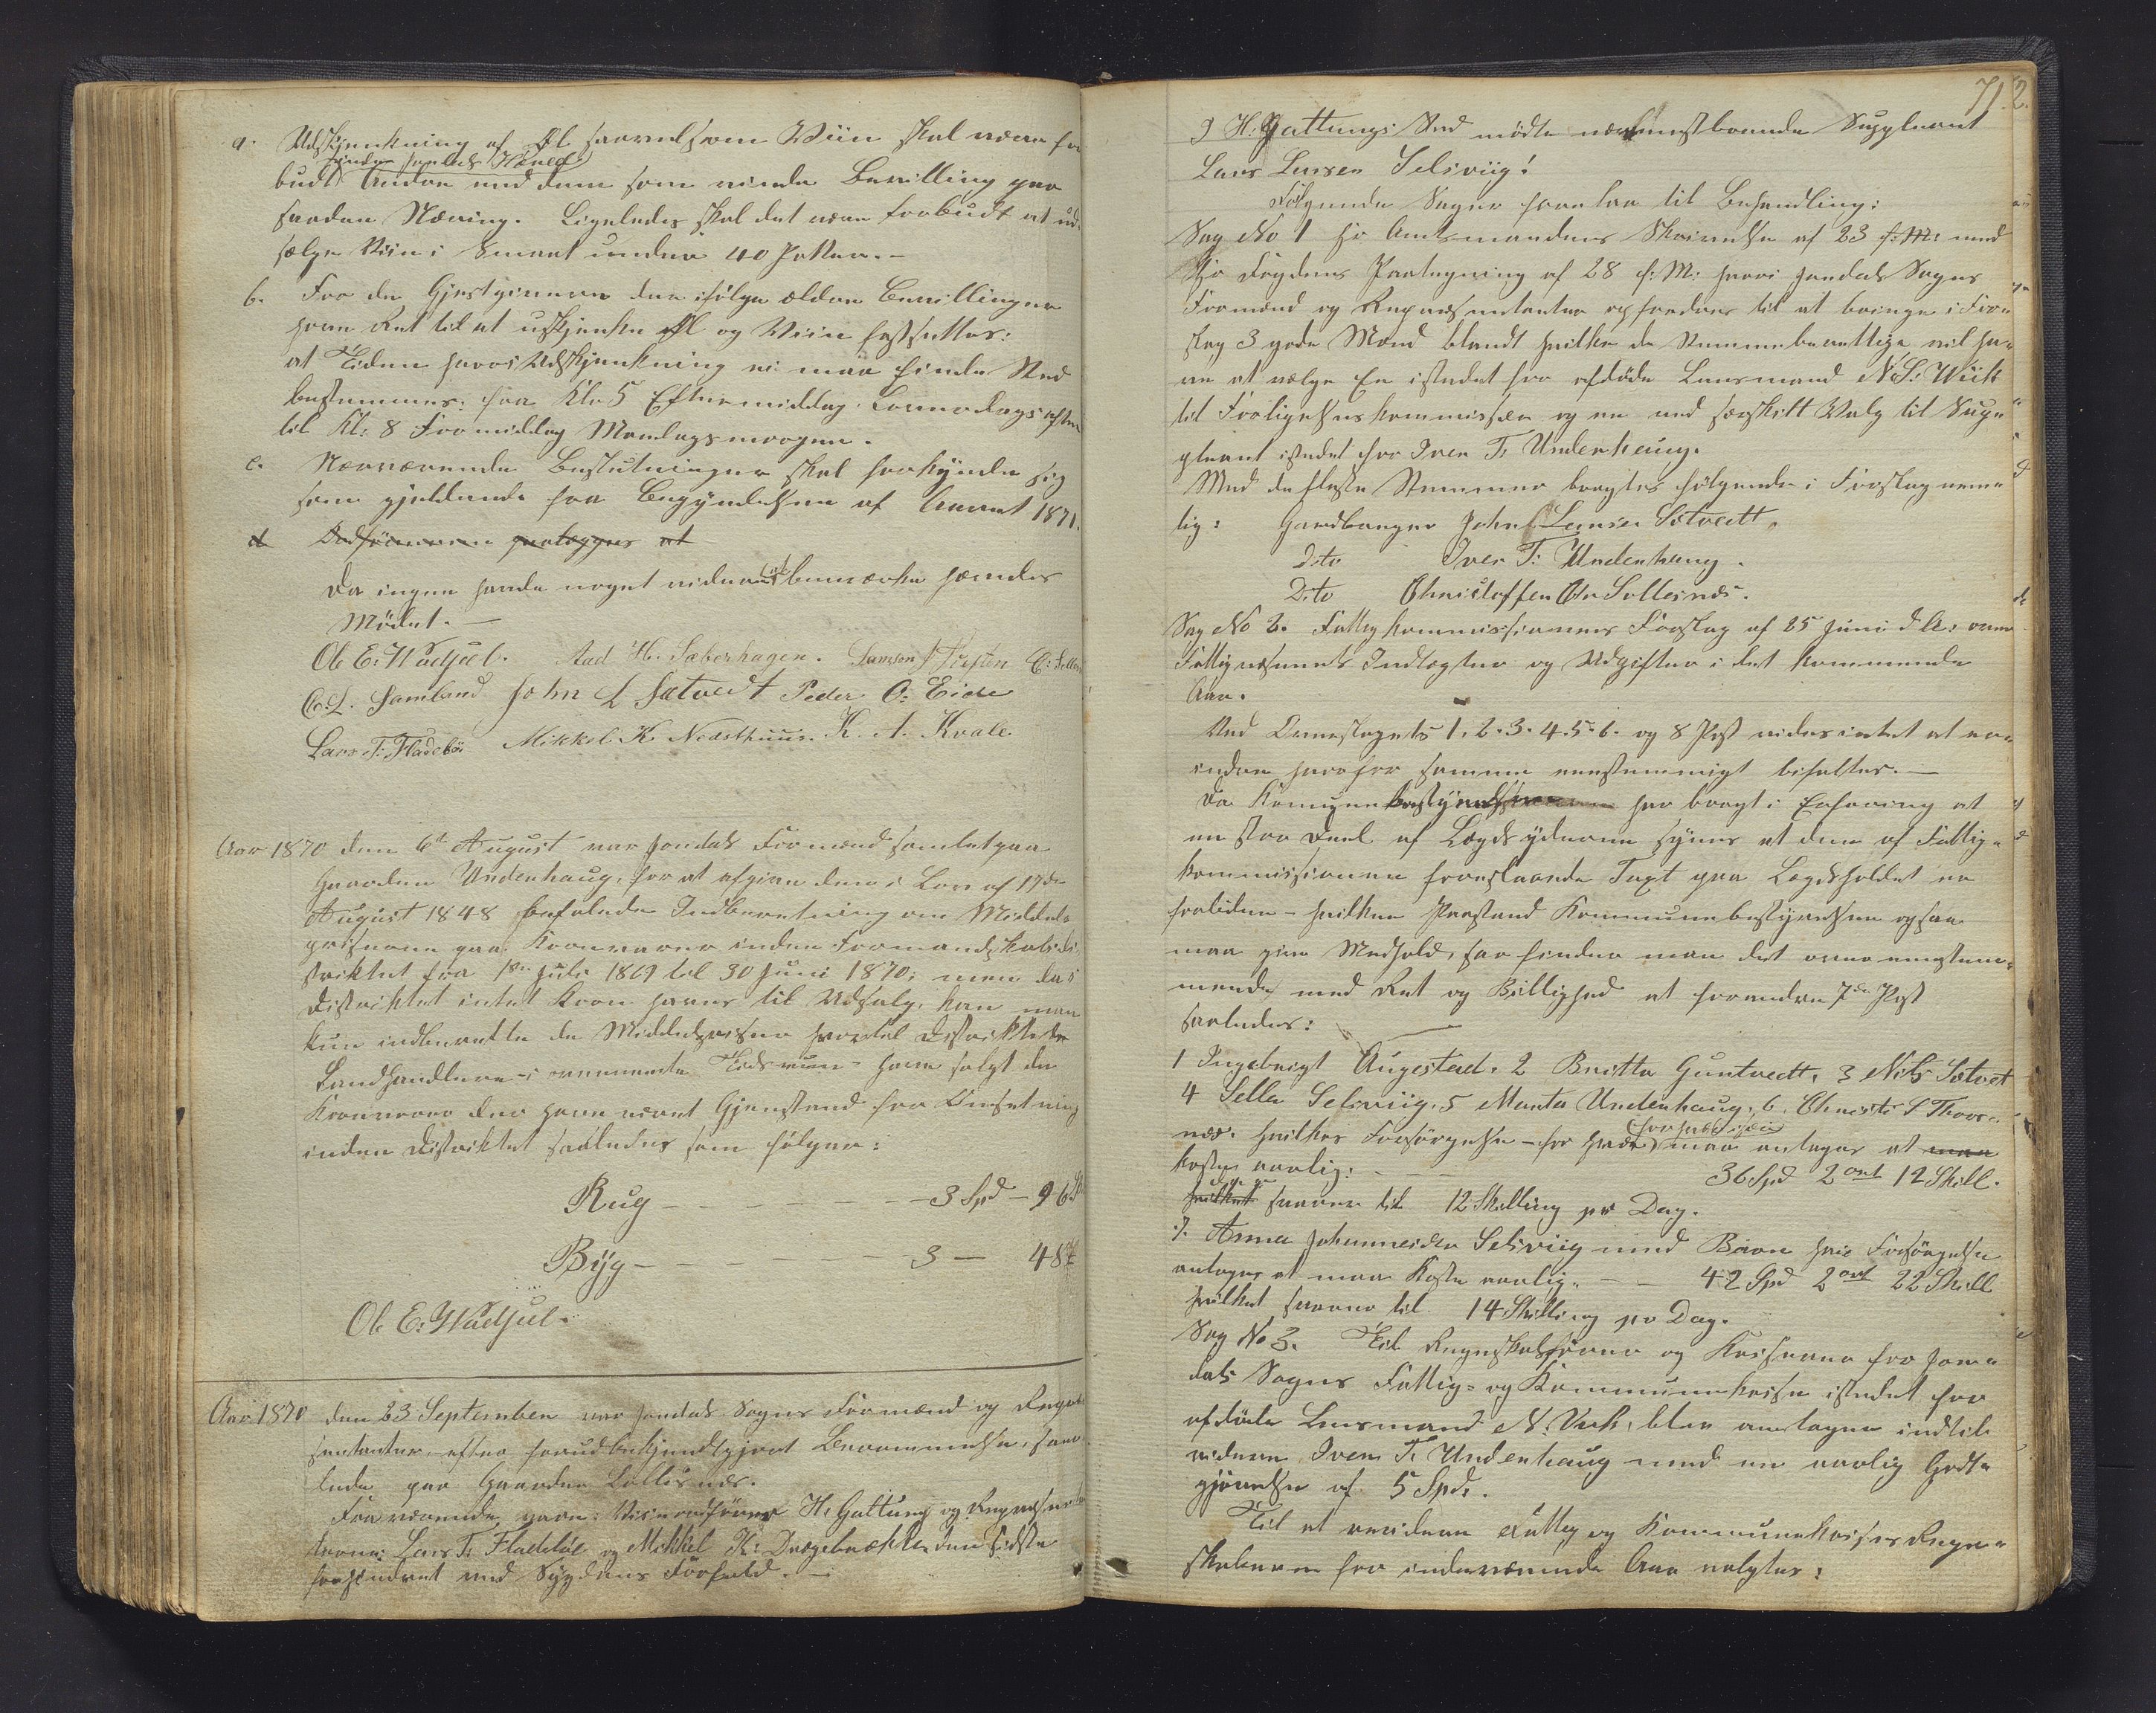 a. Udskjænkning af Øl saavelsom Viin skal være for
inden Jondals Thinglag
budt Andre end dem som vinde Bevilling paa
saadan Næring. Ligeledes skal det være forbudt at ud-
sælge Viin i Smaat under 40 Potter. -
b. For de Gjestgivere der ifølge ældre Bevillinger
have Ret til at uskjenke Øl og Viin fastsættes:
at Tiden hvori Udskjænkning ei maa finde Sted
bestemmes: fra Klo 5 Eftermiddag Løverdagsaften
til Kl: 8 Formiddag Mandagsmorgen.
c. Nærværende Beslutninger skal forkynde sig
som gjældende fra Begyndelsen af Aaret 1871.
d Ordføreren paalægges at
Da ingen havde noget videre at bemærke hævedes
Mødet. -
Ole E. Wadsel. Aad H. Sæberhagen. Samson J. E.
C. L. Samland John L Sætvedt Peder O: Eide
Lars T: Fladebø Mikkel K. Nedsthuus. K. A. Kvale
Aar 1870 den 6te August var Jondals Formænd samlet paa
Gaarden Undenhaug, for at afgive den i Lov af 17de
August 1848 befalede Indberetning om Middel-
priserne paa Kornvarer inden Formandskabsdi-
striktet fra 1ste Juli 1869 til 30 Juni 1870; men da i
Distriktet intet Korn haves til Udsalg, kan man
kun indberette de Middelpriser hvortil Distriktets
Landhandlere i ovennævnte Tidsrum have solgt de
Kornvarer der have været Gjenstand for Omsætning
inden Distriktet saaledes som følger:
Rug - - - - - 3 Spd - 96 S
Byg - - - - 3 - 48 S
Ole E: Wadsel.
Aar 1870 den 23 September var Jondals Sogns Formænd og Repræ-
sentanter efter forudbekjendtgjort Berammelse, sam-
lede paa Gaarden Sollesnæs.
Fraværende vare: Viceordfører H. Gattung og Repræsen-
terne: Lars T. Fladebø og Mikkel K: Drægebrække den sidste
forhindret ved Sygdoms Forfald. -
71. 2.
I H: Gattungs Sted mødte nærmestboende Suppleant
Lars Larsen Selsviig!
Følgende Sager foretoes til Behandling:
Sag No 1 Hr Amtmandens Skrivelse af 23 f: M: med
Hr Fogdens Paategning af 28 f: M: hvori Jondals Sogns
Formænd og Repræsentanter opfordres til at bringe i For-
slag 3 gode Mænd blandt hvilke de Stemmeberettige vil ha-
ve at vælge En istedet for afdøde Lensmand N. S: Wiik
til Forligelseskommissær og en ved særskilt Valg til Sup-
pleant istedet for Iver T. Undenhaug.
Med de fleste Stemmer bragtes følgende i Forslag nem-
lig: Gaardbruger John Larsen Sætvedt,
Dito Iver T: Undenhaug.
Dito Christoffer Sollesnæs.
Sag No 2. Fattigkommissionens Forslag af 25 Juni d. A: over
Fattigvæsenets Indtægter og Udgifter i det kommende
Aar.
Ved Overslagets 1. 2. 3. 4. 5. 6. og 8 Post vides intet at er-
indre hvorfor samme eenstemmigt bifaldtes. -
Da Kommunebestyrelsen har bragt i Erfaring at
en stor Deel af Lægdsyderne synes at den af Fattig-
kommissionen foreslaaede Taxt paa Lægdsholdet er
forliden - hvilken Paastand Kommunebestyrelsen ogsaa
maa give Medhold, saa finder man det overensstem-
mende med Ret og Billighed at forandre 7de Post
saaledes:
1 Ingebrigt Augestad. 2 Britta Guntvedt, 3 Nils Sætvet
4 Sella Selsviig. 5 Marita Undenhaug. 6. Christi S Thors-
næs. hvilkes Forsørgelse - for hver maa antages at maa
koste aarlig: - - 36 Spd 2 ort 12 Skill.
hvilket svarer til 12 Skilling pr Dag.
7. Anna Johannesdtr Selsviig med Barn hvis Forsørgelse
antages at maa koste aarlig. - - 42 Spd 2 ort 22 Skill
hvilket svarer til 14 Skilling pr Dag.
Sag No 3. Til Regnskabsfører og Kasserer for Jon-
dals Sogns Fattig- og Kommunekasse istedet for
afdøde Lensmand N. Viik, blev antagen indtil
videre Iver T. Undenhaug med en aarlig Godt-
gjørelse af 5 Spd.
Til at revidere Fattig og Kommunekasses Regn-
skaberne for indeværende Aar valgtes: